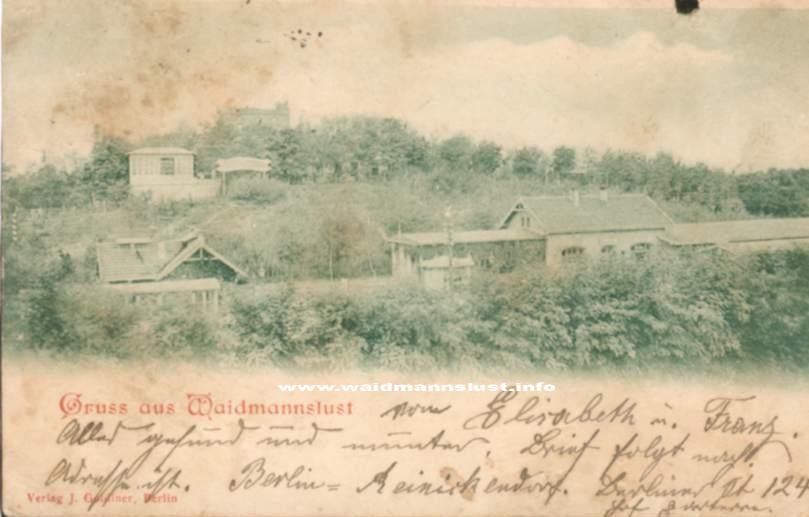 www.waidmannslust.info
Gruss aus Waidmannslust vom Elisabeth u. Franz.
Alles gesund und munter. Brief folgt nach.
Adresse ist. Berlin = Reinickendorf. Berliner St 124
Verlag J. Berlin
Hof parterre.